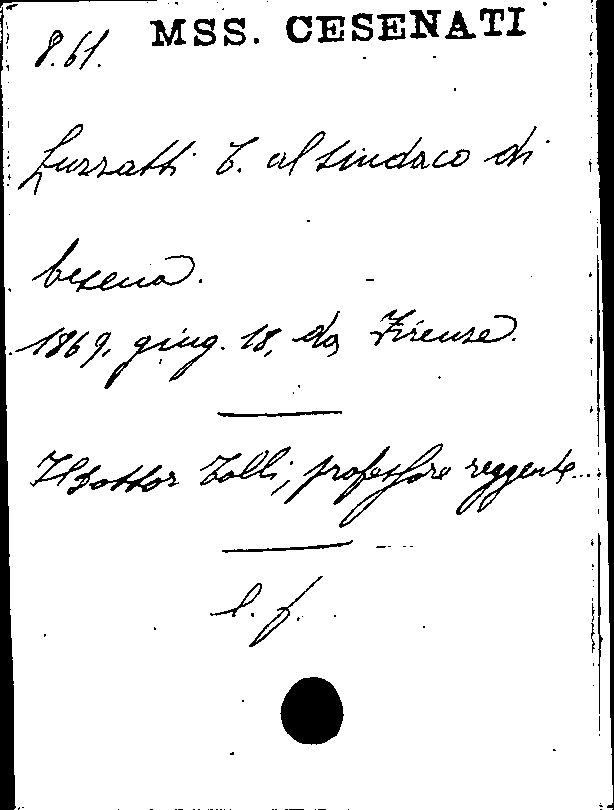 MSS. CESENATI
8.61.
Luzzatti L. al sindaco di
Cesena.
1869, giug. 18, da Firenze.
Il Dottor Tolli, professore reggente...
l. f.